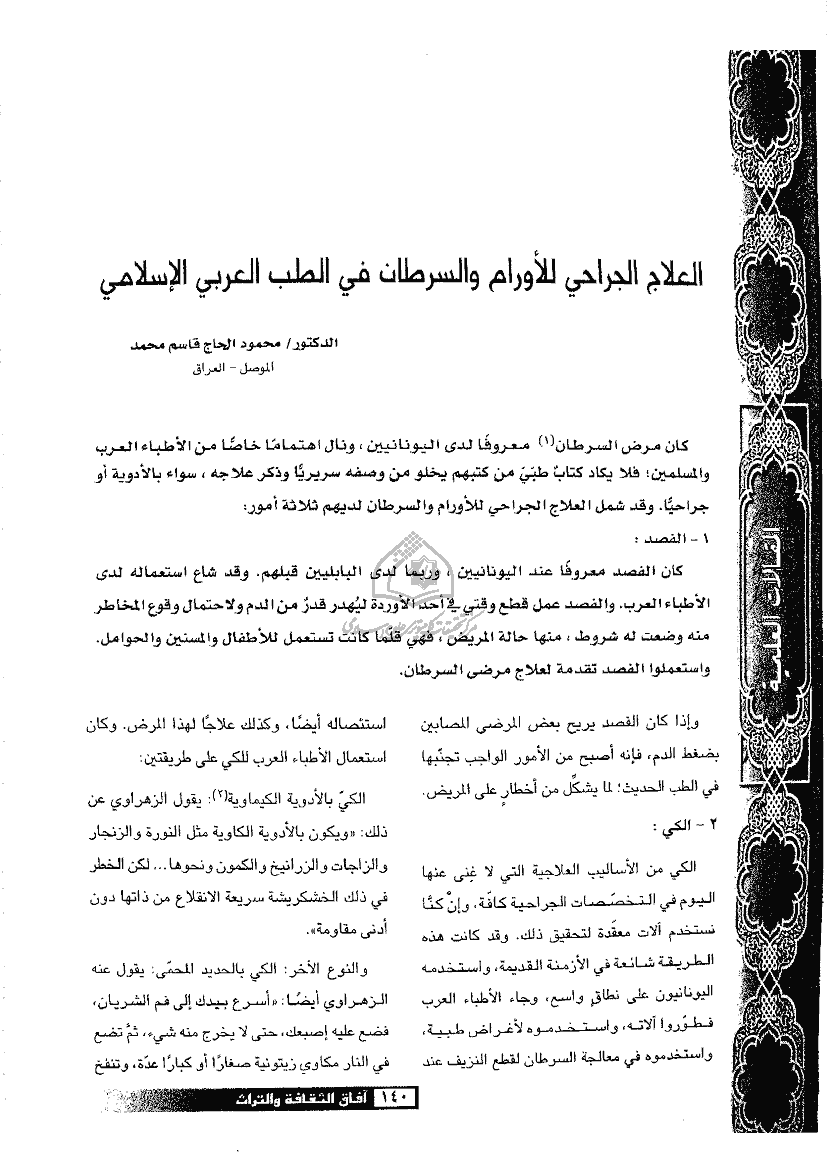 العلاج الجراحي للأورام والسرطان في الطب العربي الإسلامي
الدكتور/ محمود الحاج قاسم محمد
الموصل - العراق
كان مرض السرطان(١) معروفًا لدى اليونانيين، ونال اهتمامًا خاصًّا من الأطباء العرب
والمسلمين؛ فلا يكاد كتابٌ طبّيّ من كتبهم يخلو من وصفه سريريًّا وذكر علاجه، سواء بالأدوية أو
جراحيًّا. وقد شمل العلاج الجراحي للأورام والسرطان لديهم ثلاثة أمور:
١ - الفصد :
كان الفصد معروفًا عند اليونانيين، وربما لدى البابليين قبلهم. وقد شاع استعماله لدى
الأطباء العرب. والفصد عمل قطع وقتي في أحد الأوردة ليُهدر قدرٌ من الدم ولاحتمال وقوع المخاطر
منه وضعت له شروط، منها حالة المريض، فهي قلّما كانت تستعمل للأطفال والمسنين والحوامل.
واستعملوا الفصد تقدمة لعلاج مرضى السرطان.
وإذا كان الفصد يريح بعض المرضى المصابين
بضغط الدم، فإنه أصبح من الأمور الواجب تجنّبها
في الطب الحديث؛ لما يشكّل من أخطارٍ على المريض.
٢ - الكي :
الكي من الأساليب العلاجية التي لا غنى عنها
اليوم في التخصّصات الجراحية كافّة، وإنْ كنّا
نستخدم آلات معقّدة لتحقيق ذلك. وقد كانت هذه
الطريقة شائعة في الأزمنة القديمة، واستخدمه
اليونانيون على نطاق واسع، وجاء الأطباء العرب
فطوّروا آلاته، واستخدموه لأغراض طبية،
واستخدموه في معالجة السرطان لقطع النزيف عند
استئصاله أيضًا، وكذلك علاجًا لهذا المرض. وكان
استعمال الأطباء العرب للكي على طريقتين:
الكيّ بالأدوية الكيماوية(٢): يقول الزهراوي عن
ذلك: «ويكون بالأدوية الكاوية مثل النورة والزنجار
والزاجات والزرانيخ والكمون ونحوها... لكن الخطر
في ذلك الخشكريشة سريعة الانقلاع من ذاتها دون
أدنى مقاومة».
والنوع الآخر: الكي بالحديد المحمّى: يقول عنه
الزهراوي أيضًا: «أسرع بيدك إلى فم الشريان،
فضع عليه إصبعك، حتى لا يخرج منه شيء، ثمّ تضع
في النار مكاوي زيتونية صغارًا أو كبارًا عدّة، وتنفخ
المقالات العلمية
١٤٠ آفاق الثقافة والتراث